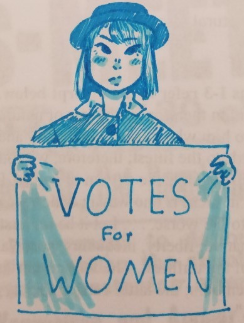 VOTES
For
WOMEN